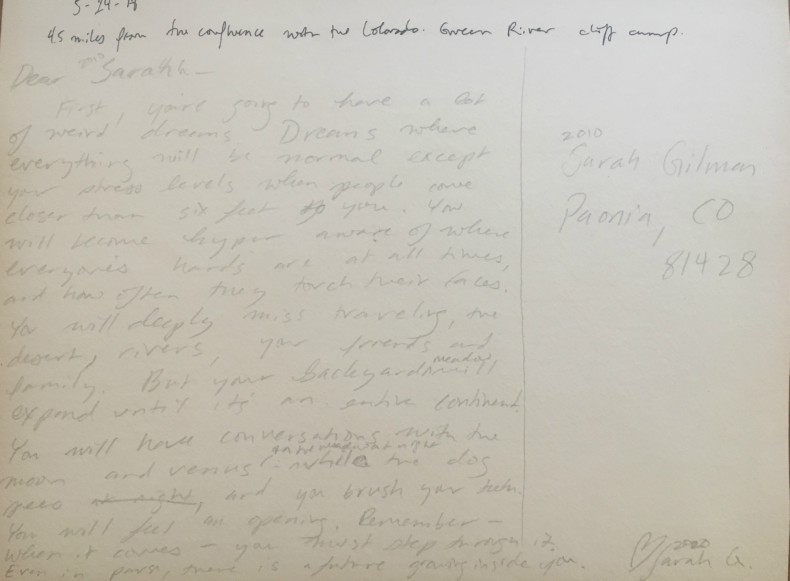 5-24-18
45 miles from the confluence with the Colorado. Green River cliff camp.
Dear 2010 Sarah G-
First, you're going to have a lot
of weird dreams. Dreams where
everything will be normal except
your stress levels when people come
closer than six feet to you. You
will become hyper aware of where
everyone's hands are at all times,
and how often they touch their faces.
You will deeply miss traveling, the
desert, rivers, your friends and
family. But your backyard meadow will
expand until it's an entire continent.
You will have conversations with the
moon and venus while the dog
pees at night, and you brush your teeth.
You will feel an opening. Remember -
when it comes - you must step through it.
Even in pause, there is a future growing inside you.
2010
Sarah Gilman
Paonia, CO
81428
♡ 2020
Sarah G.